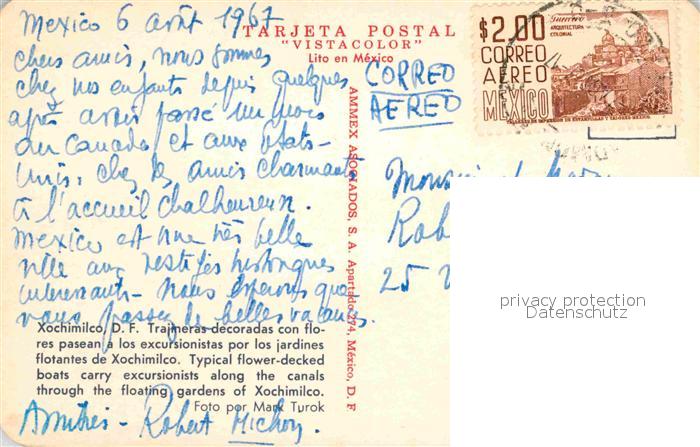 Mexico 6 août 1967
chers amis, nous sommes
chez nos enfants depuis quelques
après avoir passé un mois
au Canada et aux États-
Unis. chez des amis charmants
à l'accueil chaleureux.
Mexico est une très belle
ville aux vestiges historiques
intéressants - nous espérons que
vous passez de belles vacances.
Amitiés - Robert Michon.
TARJETA POSTAL
"VISTACOLOR"
Lito en México
CORREO
AEREO
AMMEX ASOCIADOS, S. A. Apartado 274, México, D. F.
$2.00
CORREO
AEREO
MEXICO
Guerrero
ARQUITECTURA
COLONIAL
TALLERES DE IMPRESION DE ESTAMPILLAS Y VALORES MEXICO
Monsieur et
Rob
25
privacy protection
Datenschutz
Xochimilco, D. F. Trajineras decoradas con flo-
res pasean a los excursionistas por los jardines
flotantes de Xochimilco. Typical flower-decked
boats carry excursionists along the canals
through the floating gardens of Xochimilco.
Foto por Mark Turok